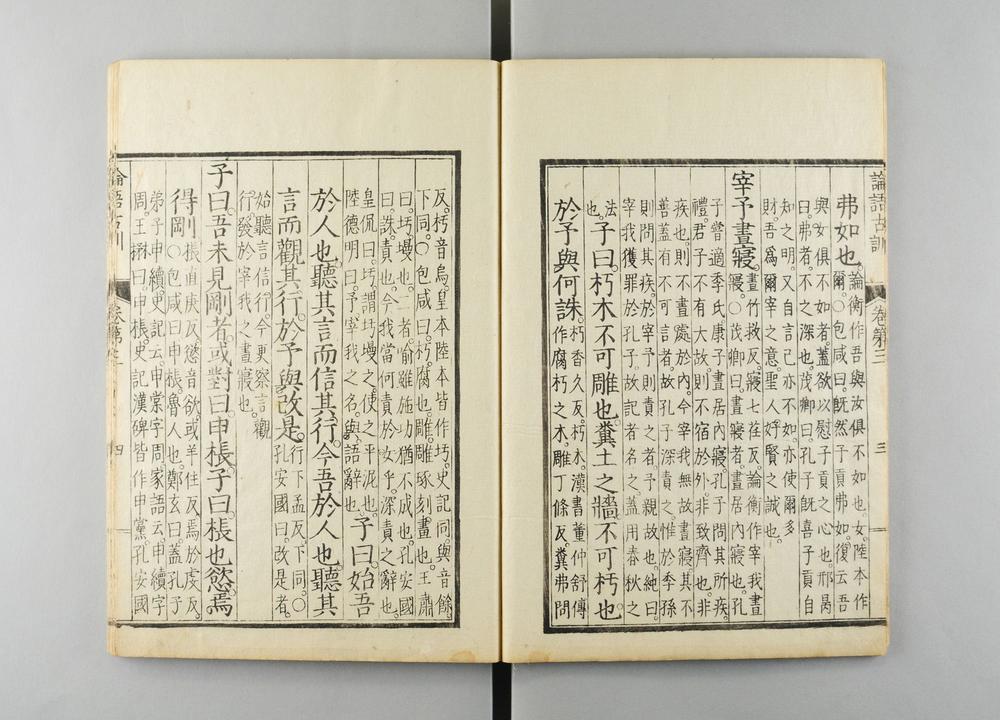 論語古訓 卷第三 三
弗如也。論衡作吾與汝俱不如也。女陸本作
爾。○包咸曰。旣然子貢弗如。復云吾
與女俱不如者。蓋欲以慰子貢之心也。邢昺
曰。弗者。不之深也。茂卿曰。孔子旣喜子貢自
知之明。又自言己亦不如。亦使爾多
財。吾爲爾宰之意。聖人好賢之誠也。
宰予晝寢。晝竹救反。寢七荏反。論衡作宰我晝
寢。○茂卿曰。晝寢者。晝居內寢也。孔
子嘗適季氏。康子晝居內寢。孔子問其所疾。
禮。君子不有大故。則不宿於外。非致齊也。非
疾也。則不晝處於內。今宰我無故晝寢。其不
善蓋有不可言者。故孔子深責之。惟於季孫
則問其疾。於宰予則責之者。予親故也。純曰。
宰我獲罪於孔子。故記者名之。蓋用春秋之
法
也。子曰。朽木不可雕也。糞土之牆。不可杇也。
於予與何誅。朽香久反。朽木。漢書董仲舒傳
作腐朽之木。雕丁條反。糞弗問
反。杇音烏。皇本陸本皆作圬。史記同。與音餘
下同。○包咸曰。朽。腐也。雕。雕琢刻畫也。王肅
曰。圬。墁也。二者喻雖施功猶不成也。孔安國
曰。誅。責也。今我當何責於女乎。深責之辭也。
皇侃曰。圬。謂圬墁之。使之平泥也。
陸德明曰。予。宰我之名。與。語辭也。子曰。始吾
於人也。聽其言而信其行。今吾於人也。聽其
言而觀其行。於予與改是。行下孟反。下同。○
孔安國曰。改是者。
始聽言信行。今更察言觀
行。發於宰我之晝寢也。
子曰。吾未見剛者。或對曰。申棖。子曰。棖也慾。焉
得剛。棖直庚反。慾音欲。或羊住反。焉於虔反。
○包咸曰。申棖。魯人也。鄭玄曰。蓋孔子
弟子申續。史記云。申棠字周。家語云。申續字
周。王曰。申棖。史記漢碑皆作申黨。孔安國
論語古訓 卷第 四